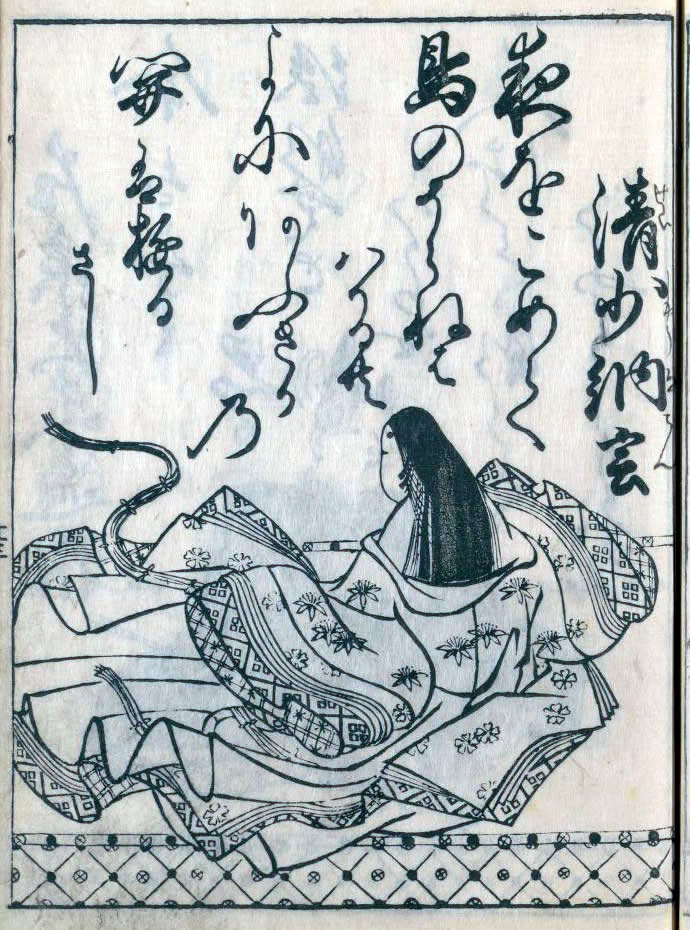 清少納言
夜をこめて
鳥のそらねは
ハかる共
よにあふさか
乃
関はゆる
さし